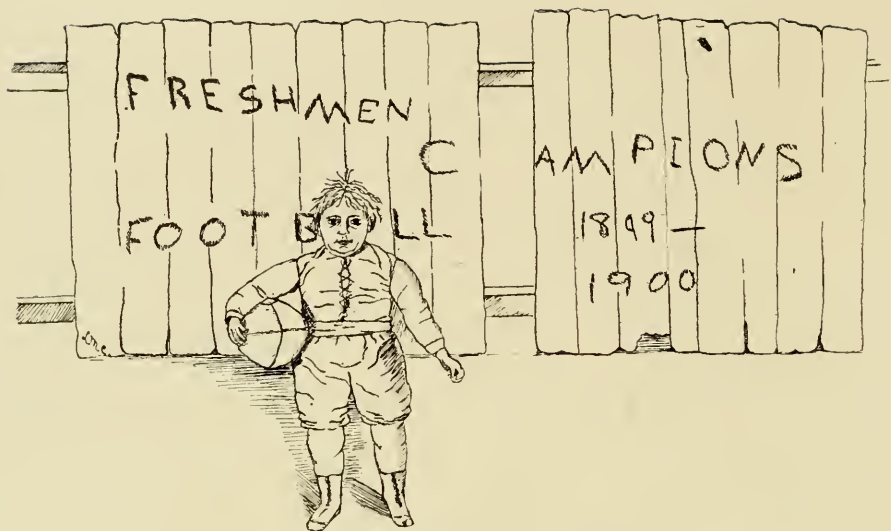 FRESHMEN
C AMPIONS
FOOTB LL
1899-
1900